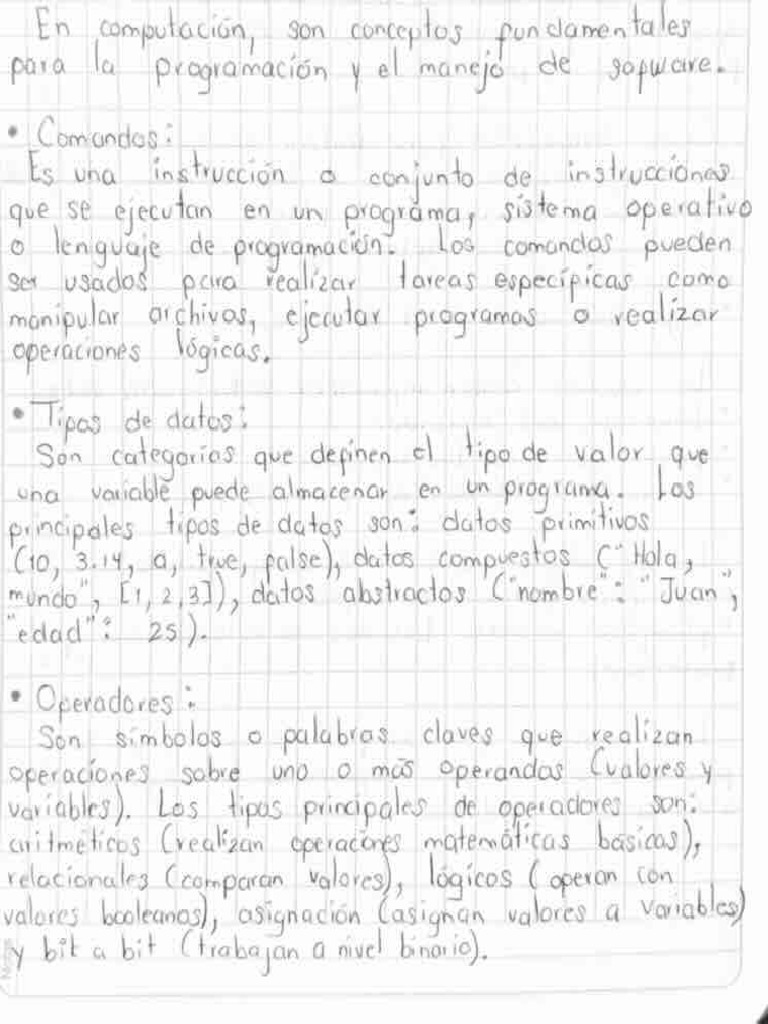 En computación, son conceptos fundamentales
para la programación y el manejo de sofware.
• Comandos:
Es una instrucción o conjunto de instrucciones
que se ejecutan en un programa, sistema operativo
o lenguaje de programación. Los comandos pueden
ser usados para realizar tareas específicas como
manipular archivos, ejecutar programas o realizar
operaciones lógicas.
• Tipos de datos:
Son categorías que definen el tipo de valor que
una variable puede almacenar en un programa. Los
principales tipos de datos son: datos primitivos
(10, 3.14, a, true, false), datos compuestos ("Hola,
mundo", [1, 2, 3]), datos abstractos ("nombre": "Juan",
"edad": 25).
• Operadores:
Son símbolos o palabras claves que realizan
operaciones sobre uno o más operandos (valores y
variables). Los tipos principales de operadores son:
aritméticos (realizan operaciones matemáticas básicas),
relacionales (comparan valores), lógicos (operan con
valores booleanos), asignación (asignan valores a variables)
y bit a bit (trabajan a nivel binario).